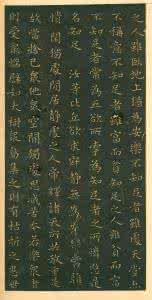 之人雖臥地上猶為安樂不知足者雖處天堂亦
不稱意不知足者雖富而貧知足之人雖貧而富
不知足者常為五欲所牽為知足者之所憐愍是
名知足 汝等比丘欲求寂靜無為安樂當離
憒鬧獨處閑居靜處之人帝釋諸天所共敬重是
故當捨己眾他眾空閑獨處思滅苦本若樂眾者
則受眾惱譬如大樹眾鳥集之則有枯折之患世